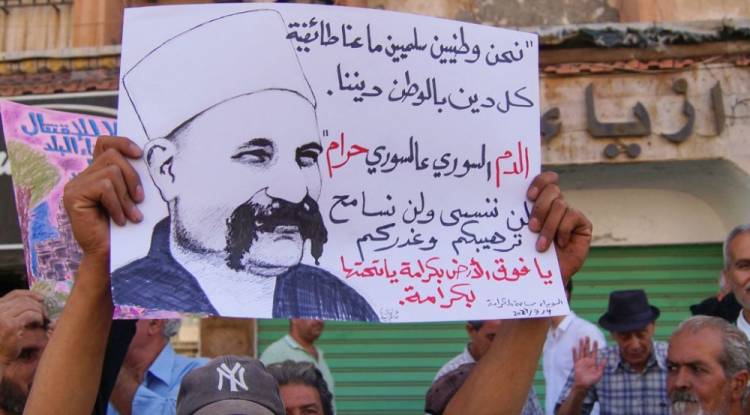 "نحن وطنيين سلميين ما عنا طائفية
كل دين بالوطن ديننا.
الدم السوري عالسوري حرام"
لن ننسى ولن نسامح
ترهيبكم وغدركم
يا فوق الأرض بكرامة يا تحتها
بكرامة.
السويداء ساحة الكرامة
للاقتتال
البلد
أزياء
NY